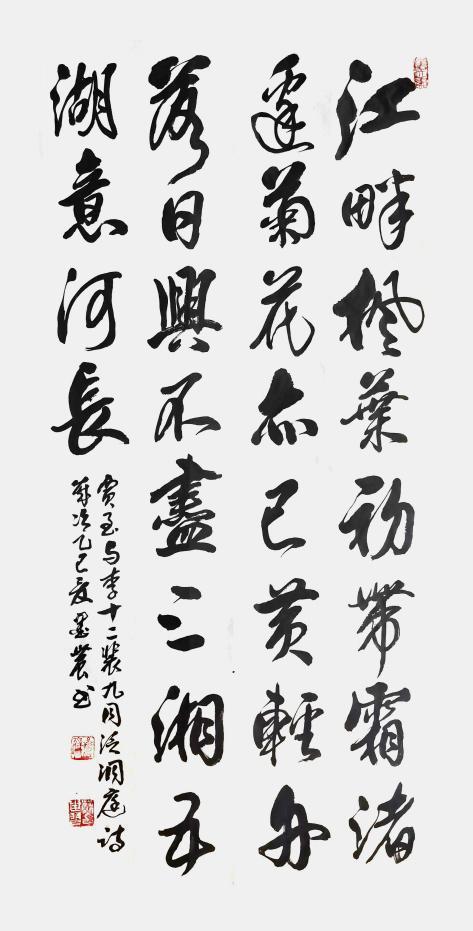 江畔楓葉初帶霜渚
邊菊花亦已黃輕舟
落日興不盡三湘五
湖意河長
賈至与李十二裴九同泛洞庭诗
歲次乙巳夏墨農书